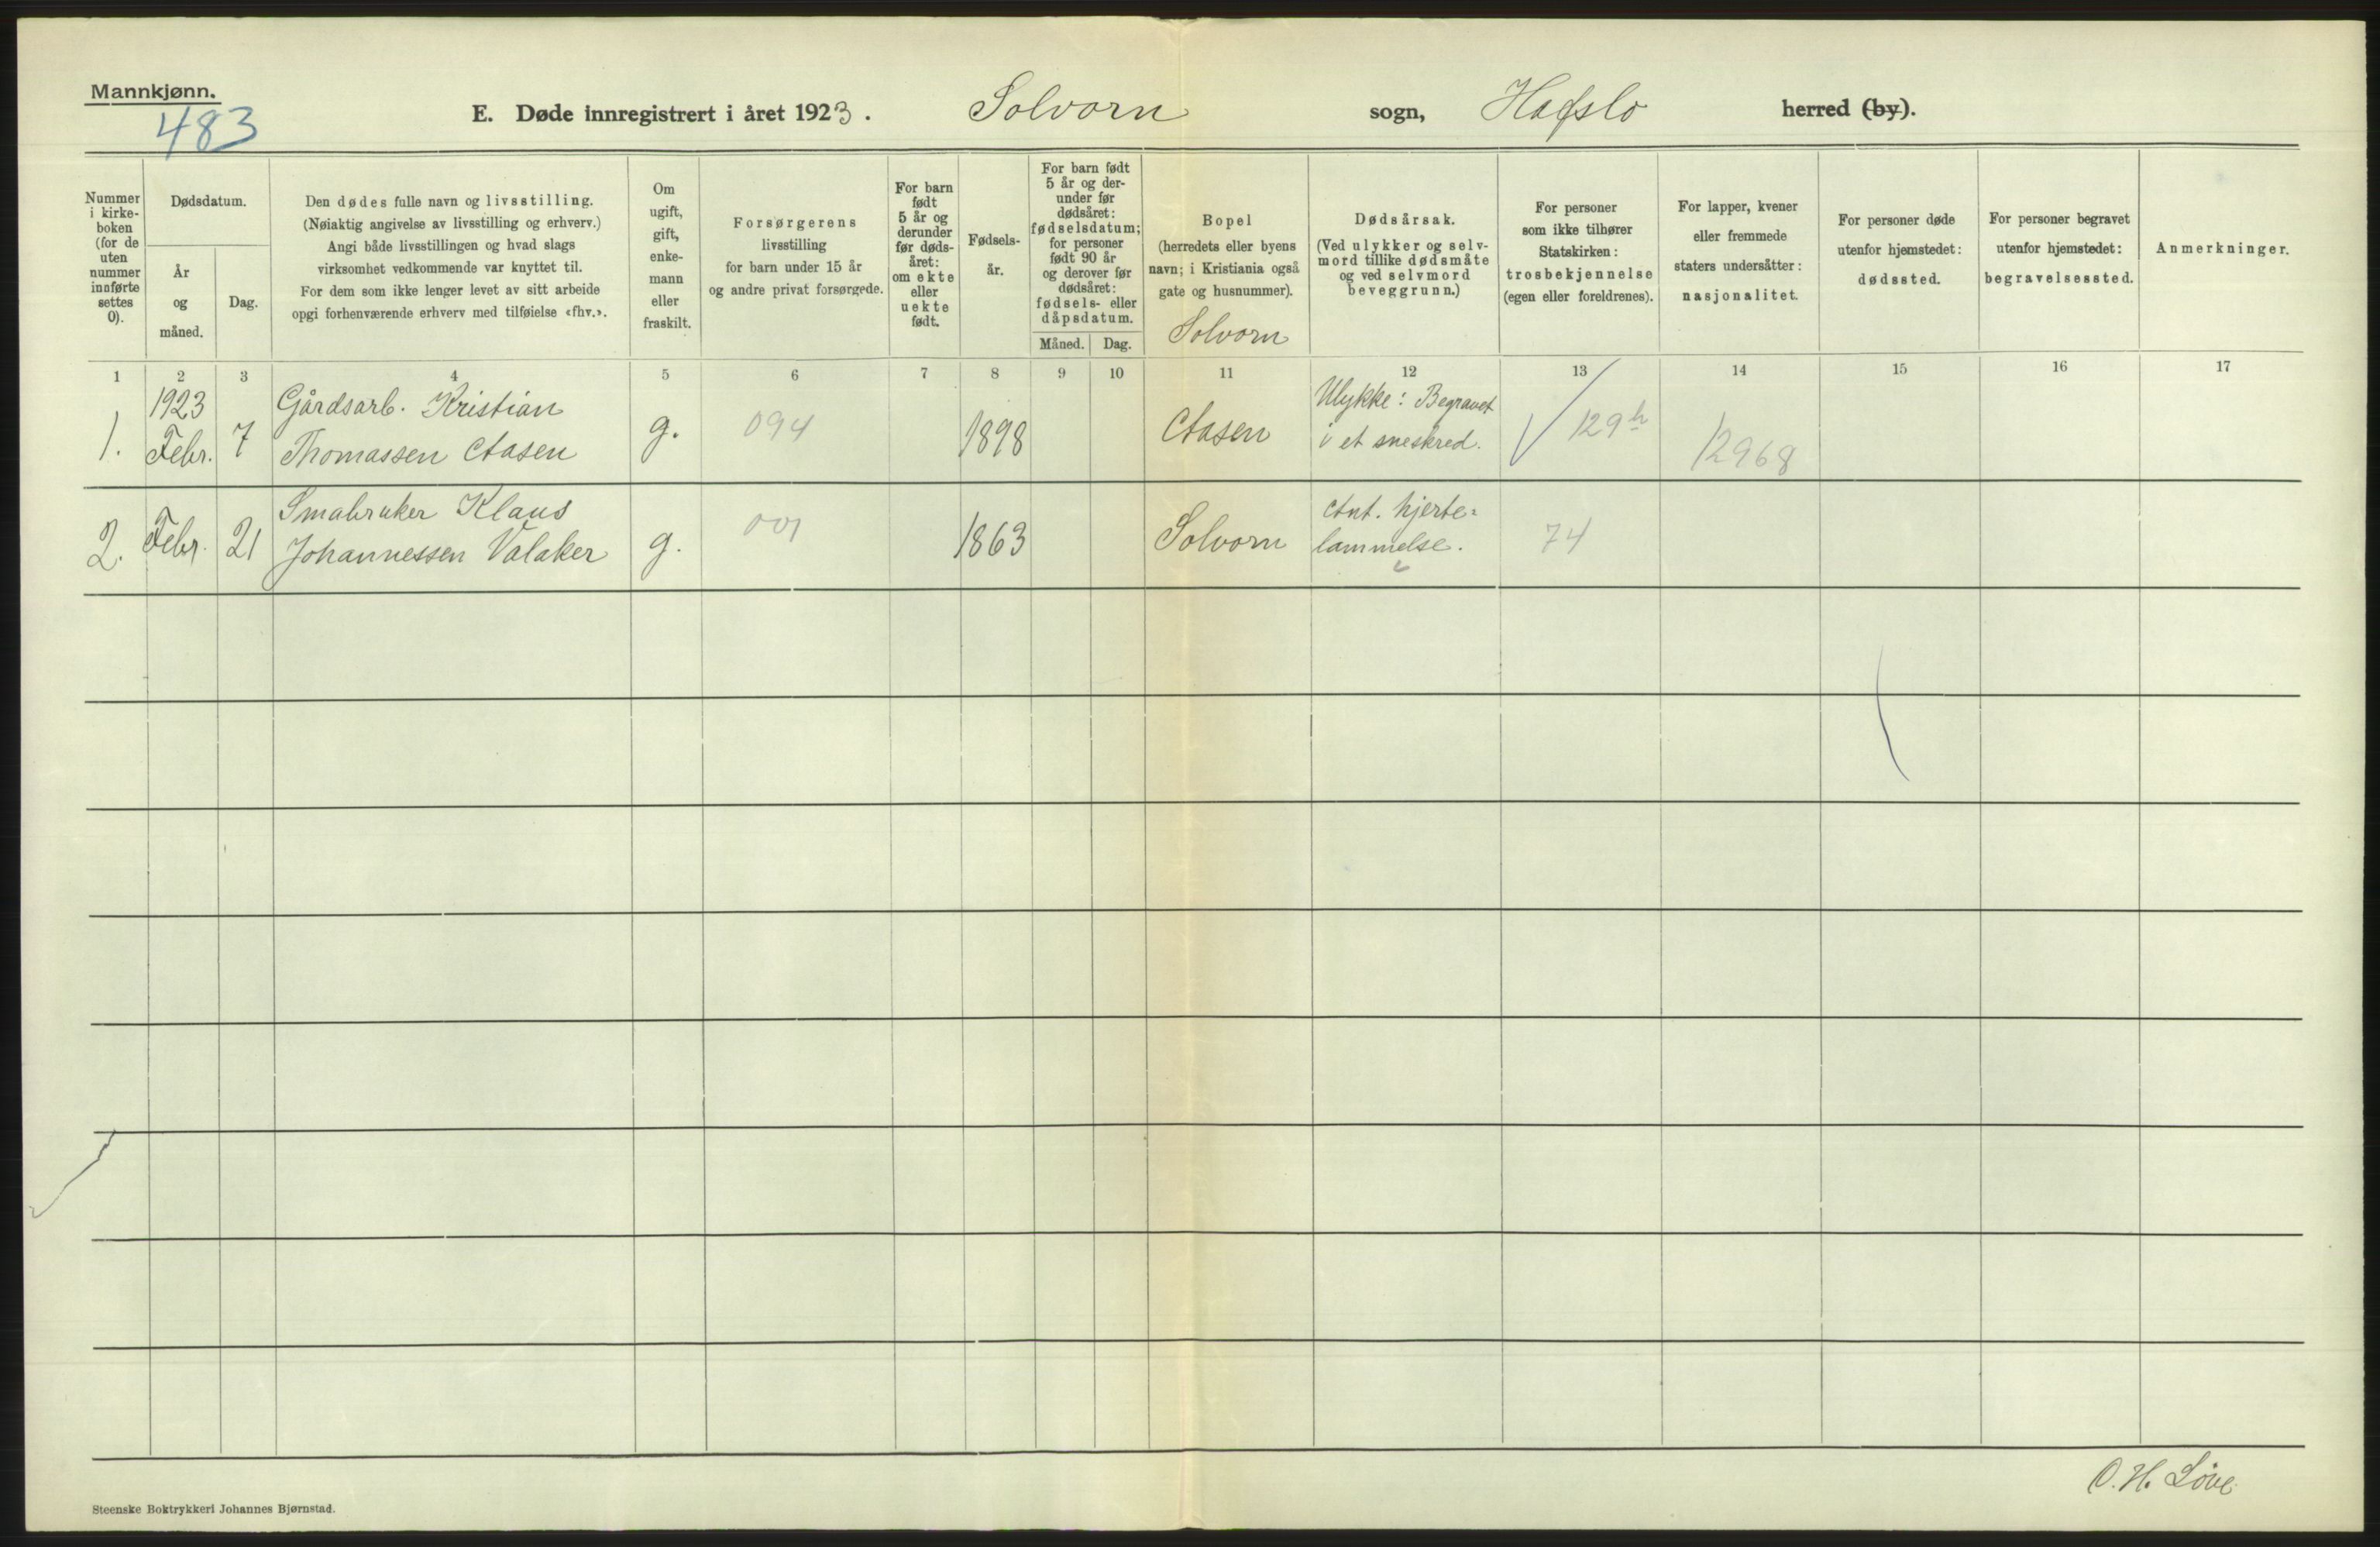 Mannkjønn.
483
E. Døde innregistrert i året 1923. Solvorn sogn, Hafslo herred (by).
Nummer
i kirke-
boken
(for de
uten
nummer
innførte
settes
0).
Dødsdatum.
År
og
måned.
Dag.
Den dødes fulle navn og livsstilling.
(Nøiaktig angivelse av livsstilling og erhverv.)
Angi både livsstillingen og hvad slags
virksomhet vedkommende var knyttet til.
For dem som ikke lenger levet av sitt arbeide
opgi forhenværende erhverv med tilføielse «fhv.».
Om
ugift,
gift,
enke-
mann
eller
fraskilt.
Forsørgerens
livsstilling
for barn under 15 år
og andre privat forsørgede.
For barn
født
5 år og
derunder
før døds-
året:
om ekte
eller
uekte
født.
Fødsels-
år.
For barn født
5 år og der-
under før
dødsåret:
fødselsdatum;
for personer
født 90 år
og derover før
dødsåret:
fødsels- eller
dåpsdatum.
Måned. Dag.
Bopel
(herredets eller byens
navn; i Kristiania også
gate og husnummer).
Solvorn
Dødsårsak.
(Ved ulykker og selv-
mord tillike dødsmåte
og ved selvmord
beveggrunn.)
For personer
som ikke tilhører
Statskirken:
trosbekjennelse
(egen eller foreldrenes).
For lapper, kvener
eller fremmede
staters undersåtter:
nasjonalitet.
For personer døde
utenfor hjemstedet:
dødssted.
For personer begravet
utenfor hjemstedet:
begravelsessted.
Anmerkninger.
1 2 3 4 5 6 7 8 9 10 11 12 13 14 15 16 17
1923 Gårdsarb. Kristian Ulykke: Begravet
1. Febr. 7 Thomassen Aasen g. 094 1898 Aasen i et sneskred. 129 h 12968
Småbruker Klaus Ant. hjerte=
2. Febr. 21 Johannessen Valaker g. 001 1863 Solvorn lammelse. 74
O. H. Løve
Steenske Boktrykkeri Johannes Bjørnstad.